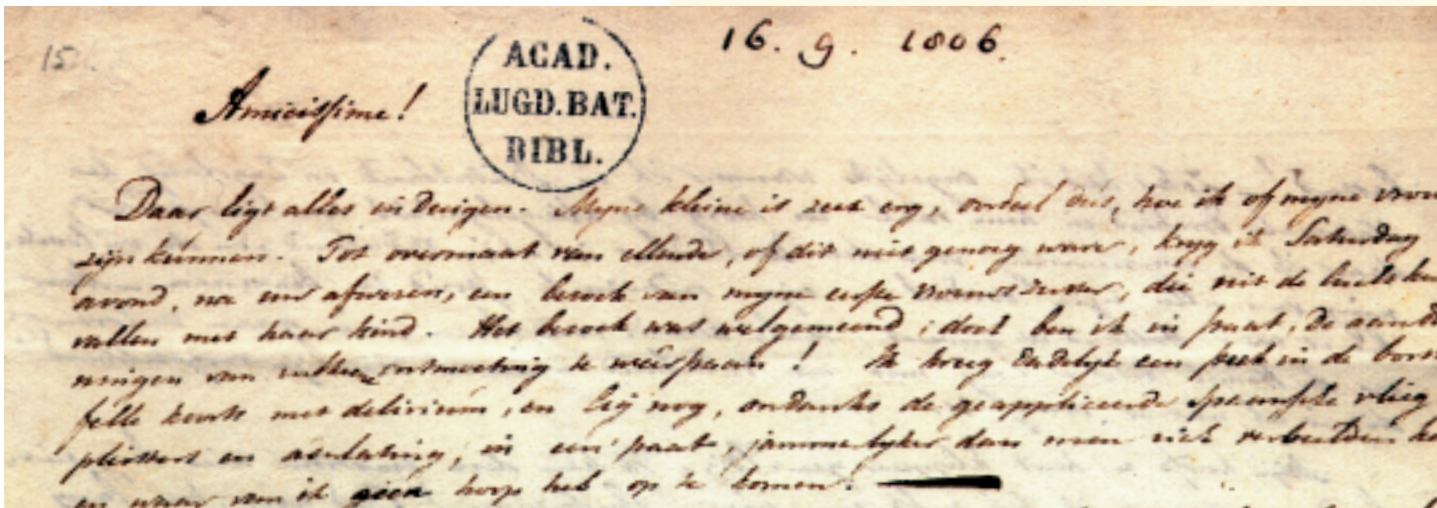 15.
16. 9. 1806.
ACAD.
LUGD. BAT.
BIBL.
Amicissime!
Daar ligt alles in duigen. Myne kleine is zeer erg, oordeel dús, hoe ik of myne vrouw
zijn kúnnen. Tot overmaat van ellende, of dit niet genoeg ware, kryg ik Saturdag
avond, na een afwezen, een bezoek van myne eerste vrouws zuster, die uit de lucht kwam
vallen met haar kind. Het bezoek was welgemeend; doch ben ik in staat, de aandoe-
ningen van zulke ontmoeting te wêerstaan! Ik kreeg dadelyk een steek in de borst
felle koorts met deliriúm, en lig nog, ondanks de geappliceerde spaansche vlieg
pleisters en aderlating, in een staat, jammerlyker dan men zich verbeelden kan
en waar van ik geen hoop heb op te komen.